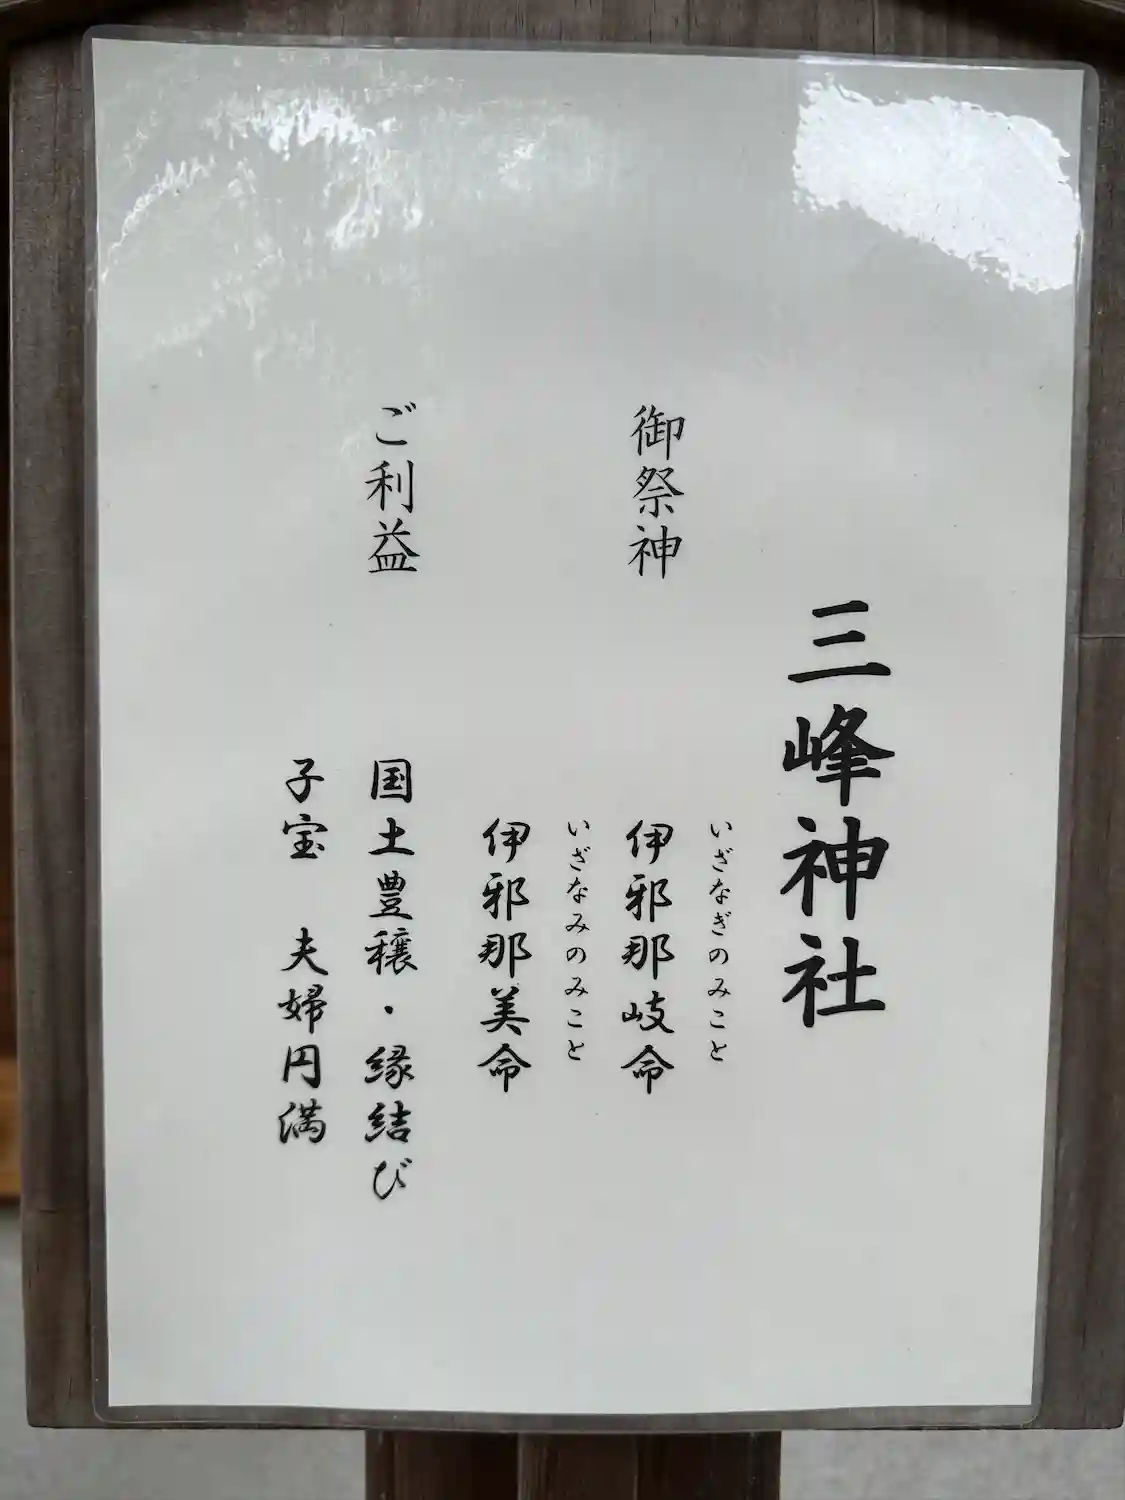 三峰神社
御祭神
いざなぎのみこと
伊邪那岐命
いざなみのみこと
伊邪那美命
ご利益
国土豊穣・縁結び
子宝　夫婦円満